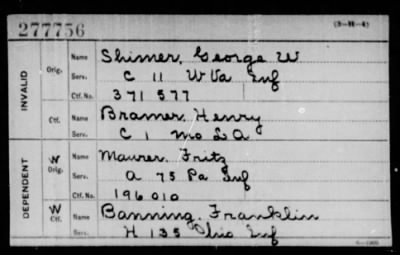 277756
(3-11-4)
INVALID
Orig.
Name Shimer, George W
Serv. C 11 W Va Inf
Ctf. No. 371 577
Ctf.
Name Bramer, Henry
Serv. C 1 Mo L A
DEPENDENT
W Orig.
Name Maurer, Fritz
Serv. A 75 Pa Inf
Ctf. No. 196010
W Ctf.
Name Banning, Franklin
Serv. H 135 Ohio Inf